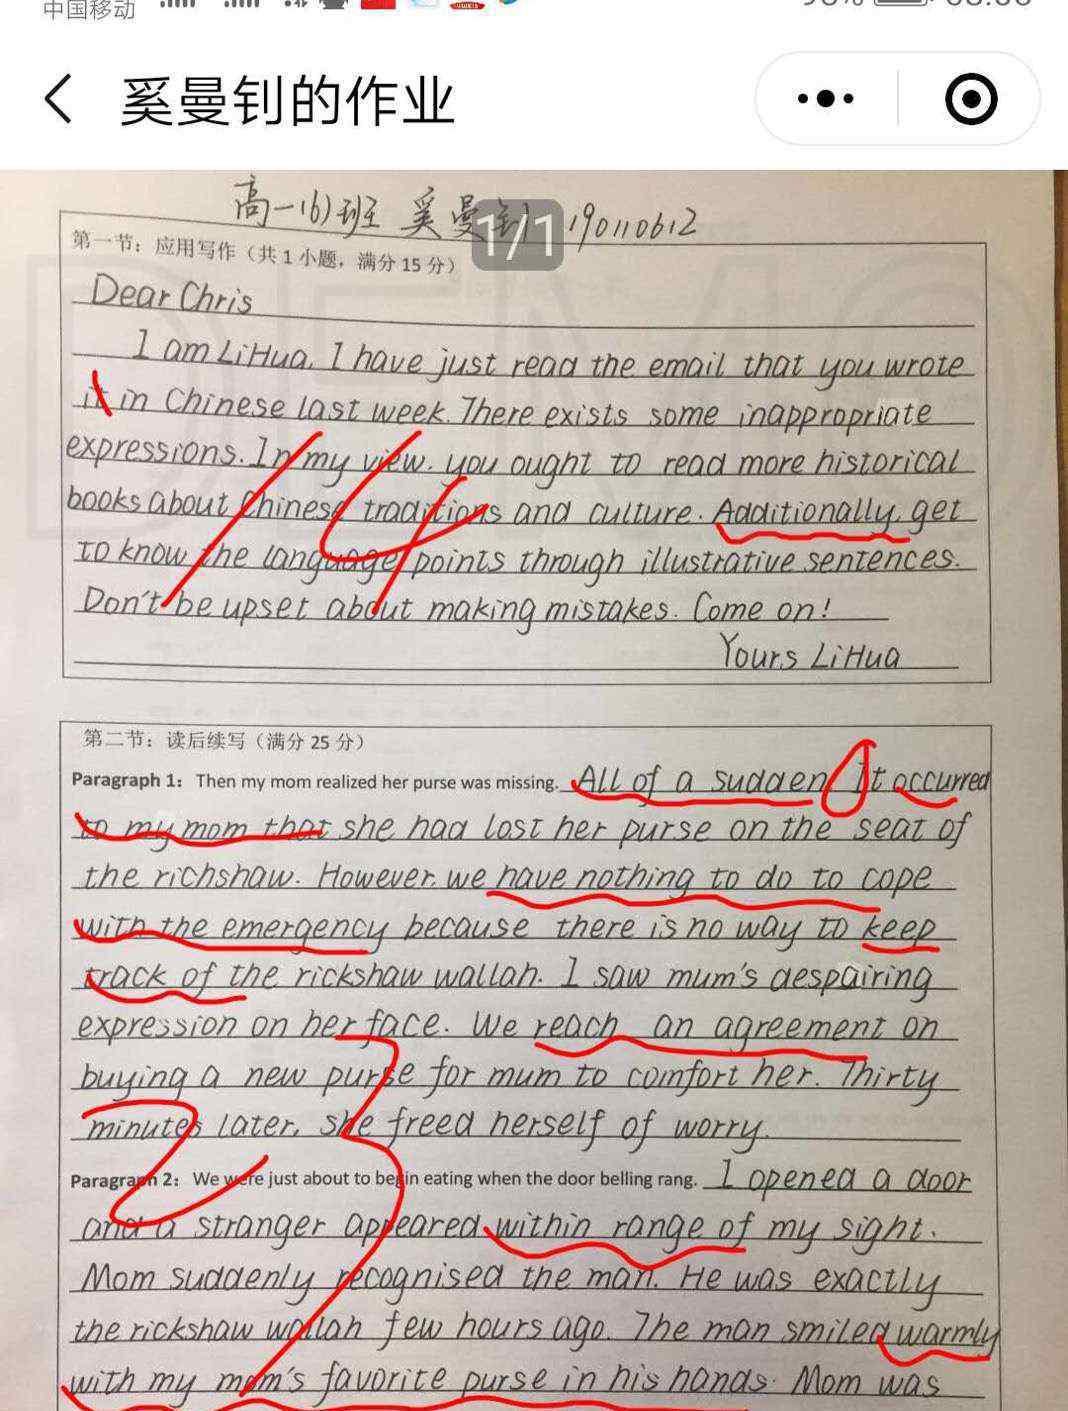 中国移动
奚曼钊的作业
高一(6)班 奚曼钊 190110612
1/1
第一节：应用写作（共1小题，满分15分）
Dear Chris
I am LiHua. I have just read the email that you wrote
it in Chinese last week. There exists some inappropriate
expressions. In my view. you ought to read more historical
books about Chinese traditions and culture. Additionally, get
to know the language points through illustrative sentences.
Don't be upset about making mistakes. Come on!
Yours LiHua
14
第二节：读后续写（满分25分）
Paragraph 1: Then my mom realized her purse was missing. All of a sudden It occurred
to my mom that she had lost her purse on the seat of
the richshaw. However, we have nothing to do to cope
with the emergency because there is no way to keep
track of the rickshaw wallah. I saw mum's despairing
expression on her face. We reach an agreement on
buying a new purse for mum to comfort her. Thirty
minutes later, she freed herself of worry.
23
Paragraph 2: We were just about to begin eating when the door belling rang. I opened a door
and a stranger appeared within range of my sight.
Mom suddenly recognised the man. He was exactly
the rickshaw wallah few hours ago. The man smiled warmly
with my mom's favorite purse in his hands. Mom was